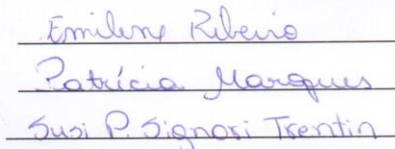 Emilene Ribeiro
Patrícia Marques
Susi P. Signori Trentin